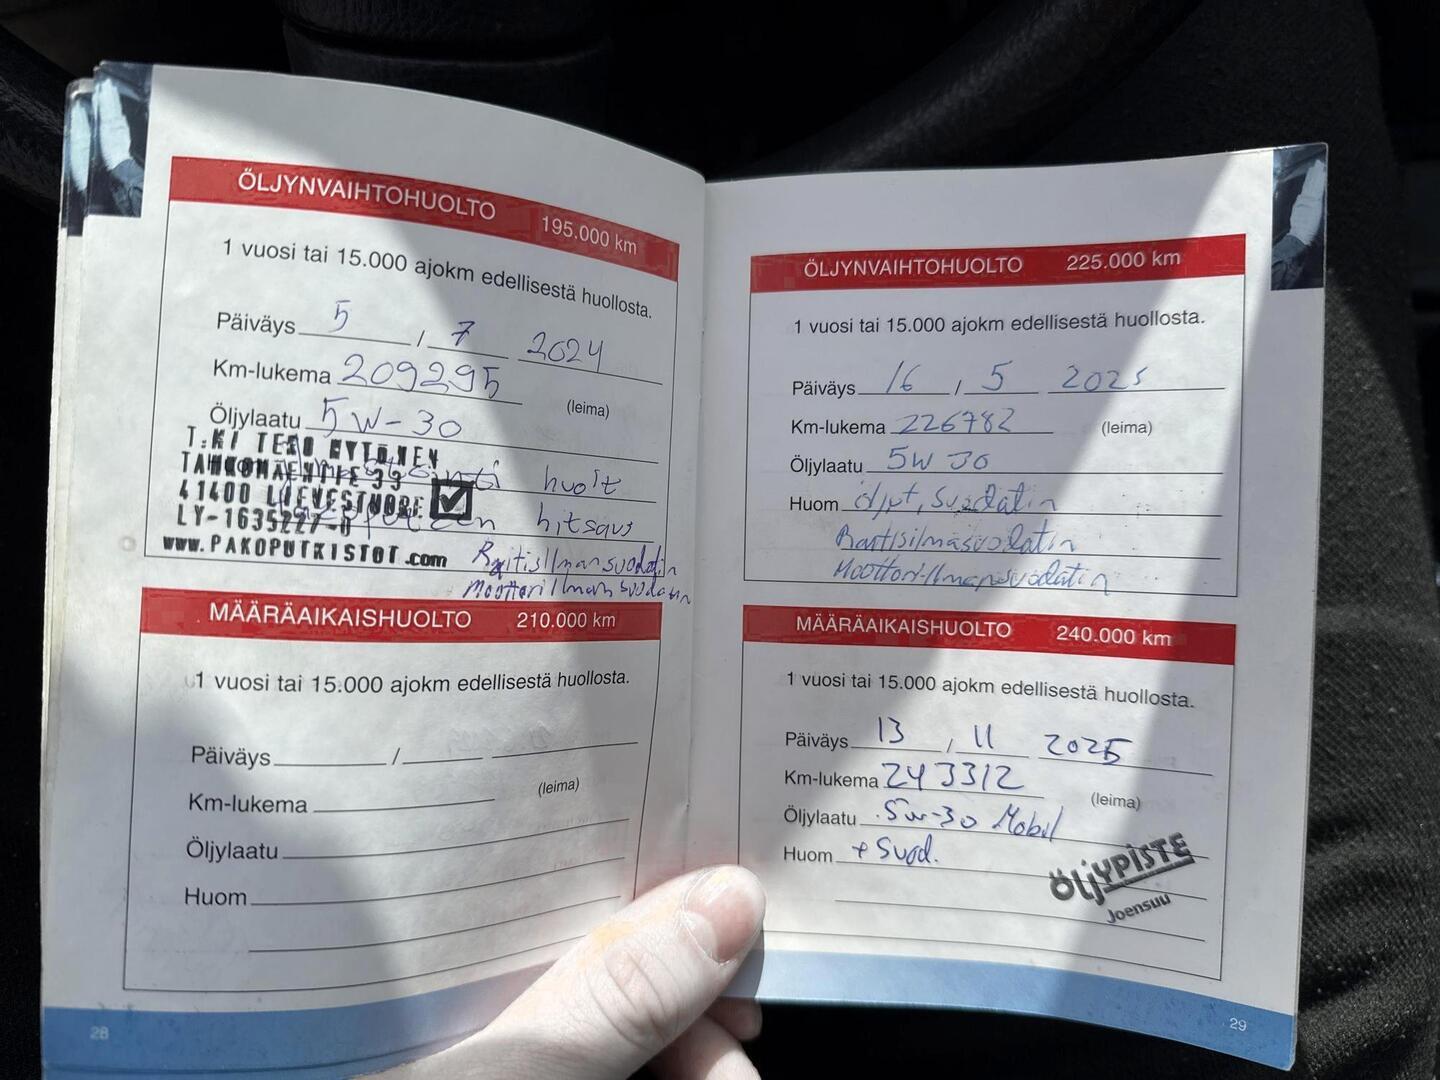 ÖLJYNVAIHTOHUOLTO 195.000 km
1 vuosi tai 15.000 ajokm edellisestä huollosta.
Päiväys 5 / 7 2024
Km-lukema 209295
(leima)
Öljylaatu 5W-30
huolt
hitsaus
TANKOMÄENTIE 33
41400 LIEVESTUORE
LY-1635227-0
www.PAKOPUTKISTOT.com
Raitisilmansuodatin
Moottorilmansuodatin
MÄÄRÄAIKAISHUOLTO 210.000 km
1 vuosi tai 15.000 ajokm edellisestä huollosta.
Päiväys /
(leima)
Km-lukema
Öljylaatu
Huom
28
ÖLJYNVAIHTOHUOLTO 225.000 km
1 vuosi tai 15.000 ajokm edellisestä huollosta.
Päiväys 16 / 5 2025
Km-lukema 226782 (leima)
Öljylaatu 5W30
Huom öljyt, suodatin
Raitisilmasuodatin
Moottori-Ilmansuodatin
MÄÄRÄAIKAISHUOLTO 240.000 km
1 vuosi tai 15.000 ajokm edellisestä huollosta.
Päiväys 13 / 11 2025
Km-lukema 243312
(leima)
Öljylaatu 5w-30 Mobil
Huom + Suod.
ÖLJYPISTE
Joensuu
29